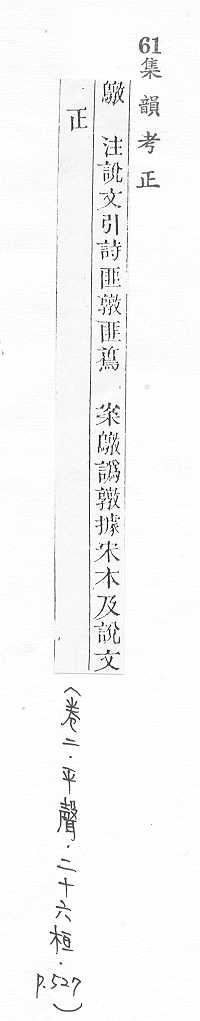 61
集韻考正
注說文引詩匪匪 案譌據宋本及說文
正
(卷二.平聲.二十六桓.
p.527)